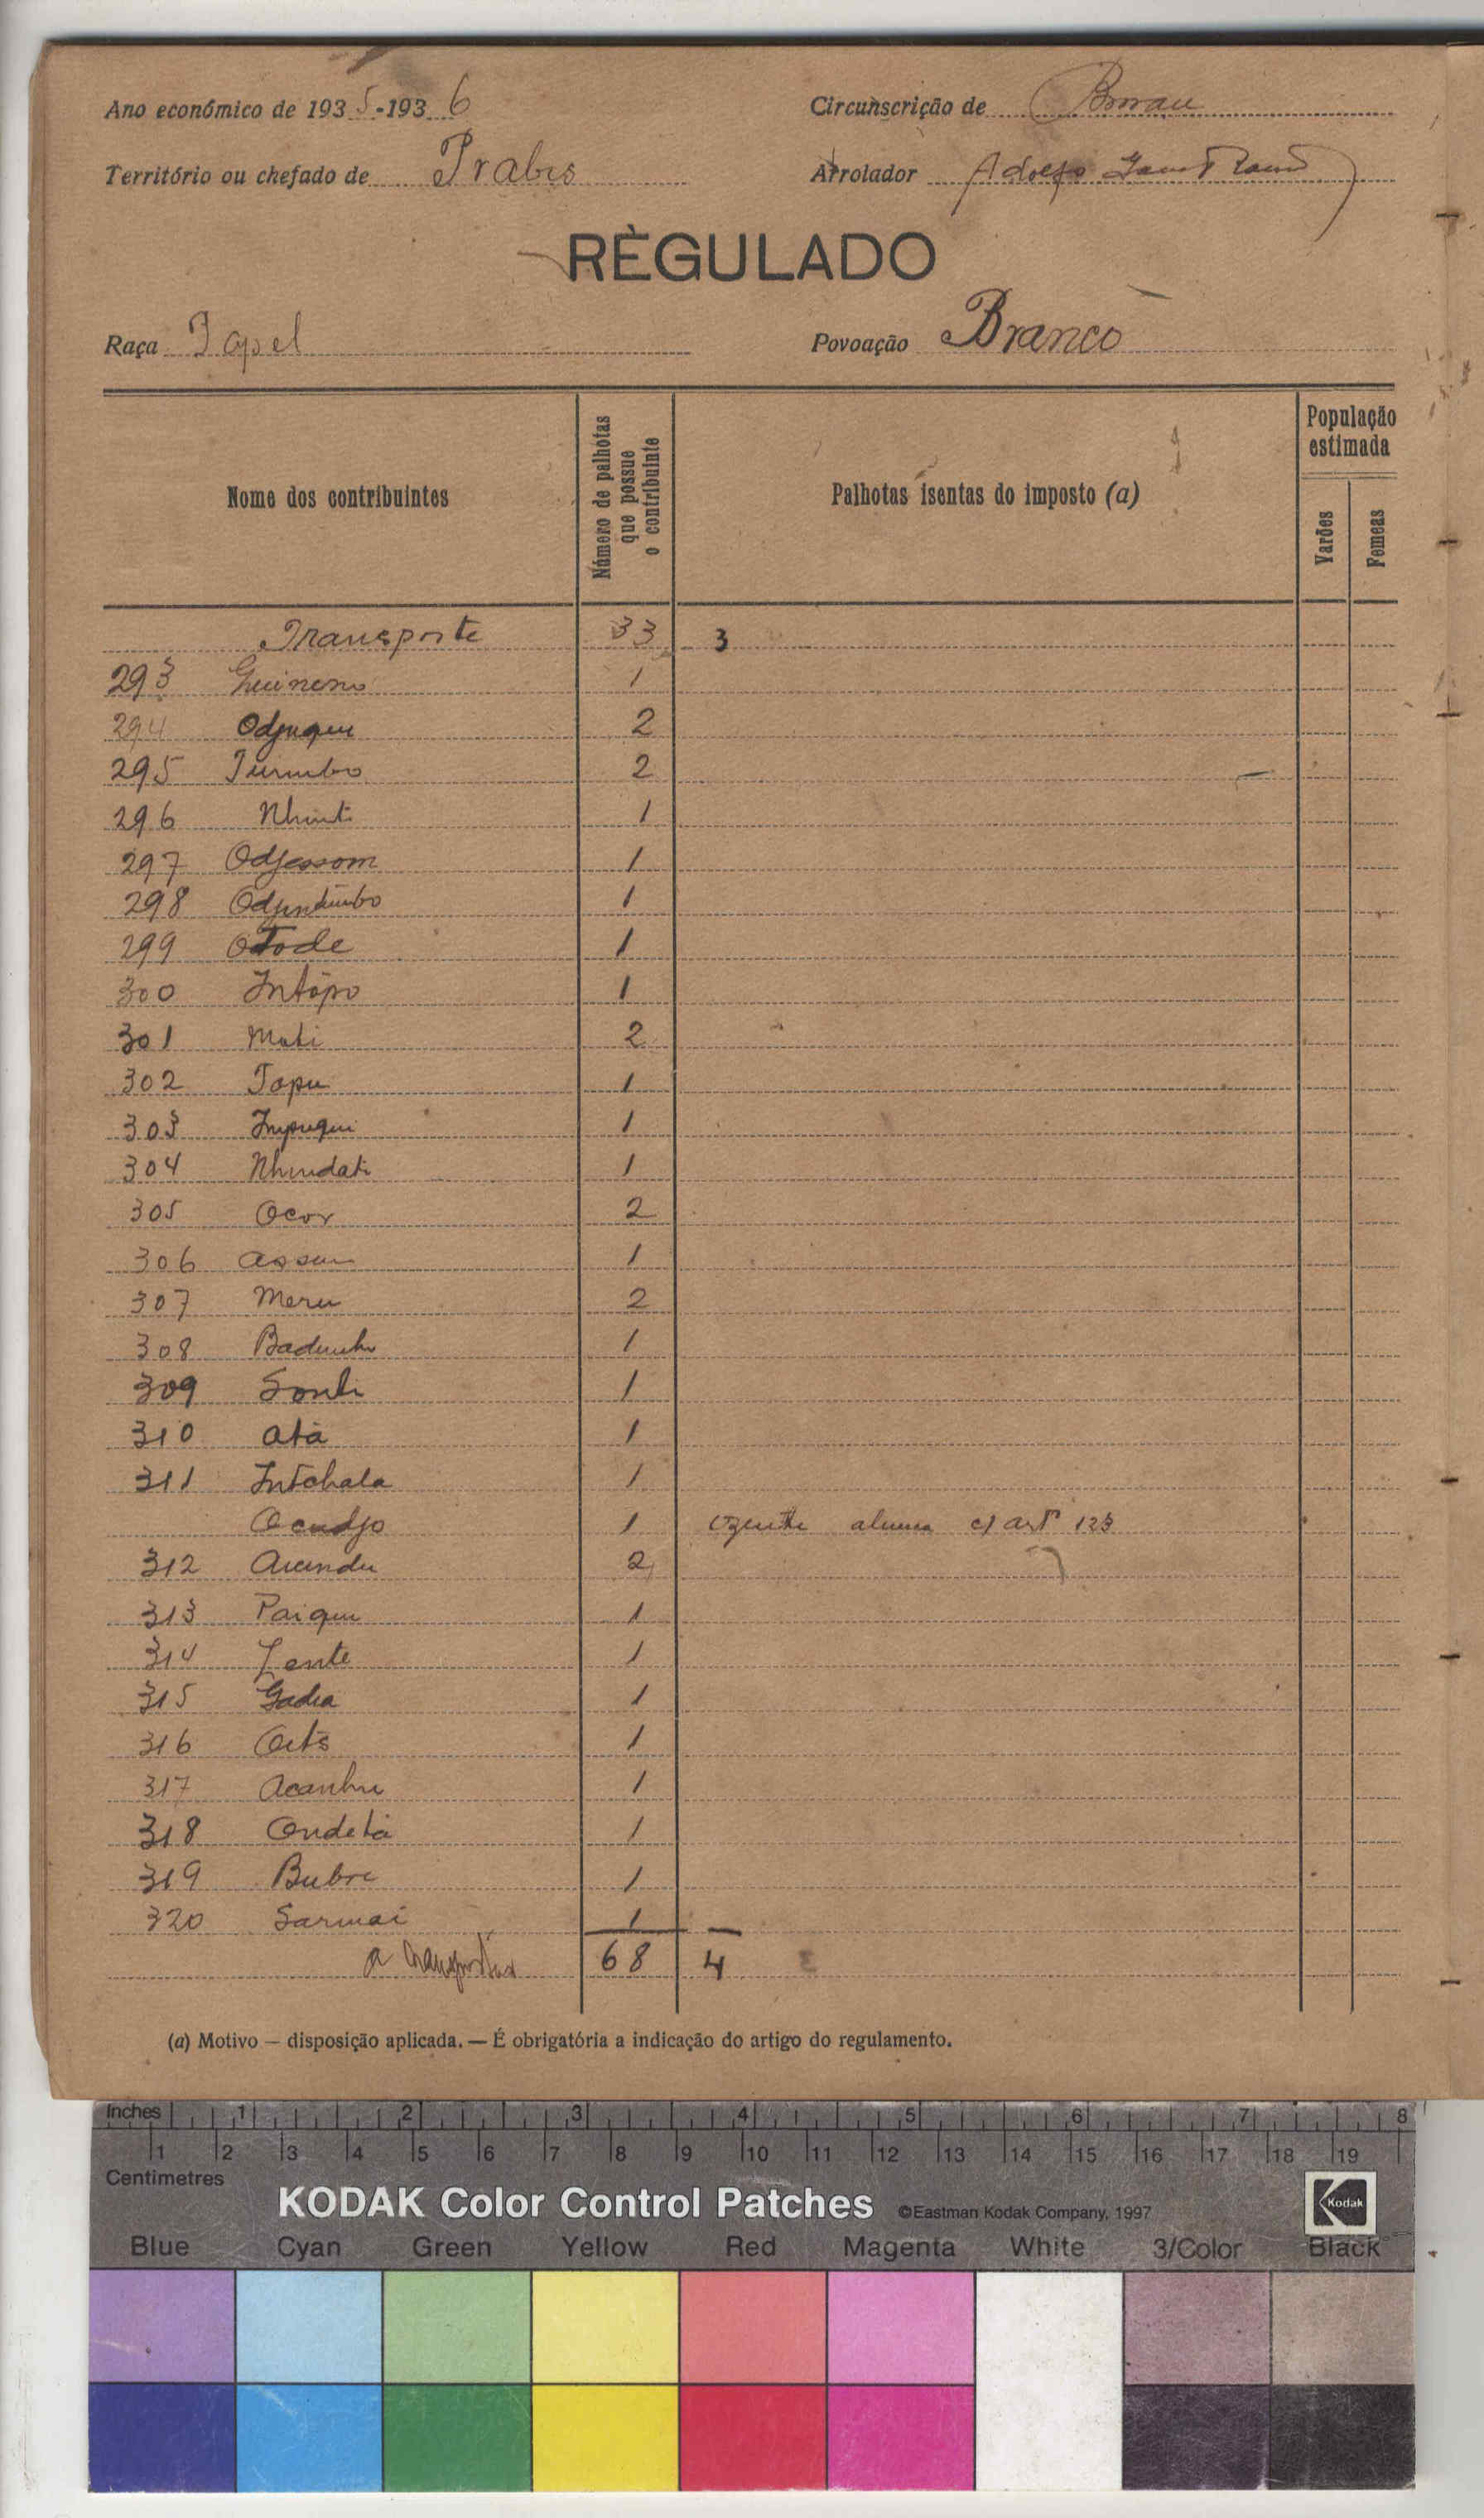 Ano económico de 1935-1936 Circunscrição de
Território ou chefado de Prabis Arrolador Adolfo
REGULADO
Raça Papel Povoação Branco
Nome dos contribuintes
Número de palhotas que possue o contribuinte
Palhotas isentas do imposto (a)
População estimada
Varões
Femeas
Transporte 33 3
293 1
294 Odjuque 2
295 2
296 Nhinti 1
297 Odjessom 1
298 1
299 Otode 1
300 Intópo 1
301 Muti 2
302 Topu 1
303 Impuqui 1
304 Nhundati 1
305 Ocor 2
306 1
307 Meru 2
308 1
309 1
310 Atá 1
311 Intchala 1
Ocudjo 1 c/ art 123
312 2
313 Paique 1
314 1
315 1
316 1
317 Acanhu 1
318 Ondetá 1
319 Bubre 1
320 Sarmai 1
a transportar 68 4
(a) Motivo — disposição aplicada. — É obrigatória a indicação do artigo do regulamento.
Inches 1 2 3 4 5 6 7 8
1 2 3 4 5 6 7 8 9 10 11 12 13 14 15 16 17 18 19
Centimetres
KODAK Color Control Patches ©Eastman Kodak Company, 1997 Kodak
Blue Cyan Green Yellow Red Magenta White 3/Color Black